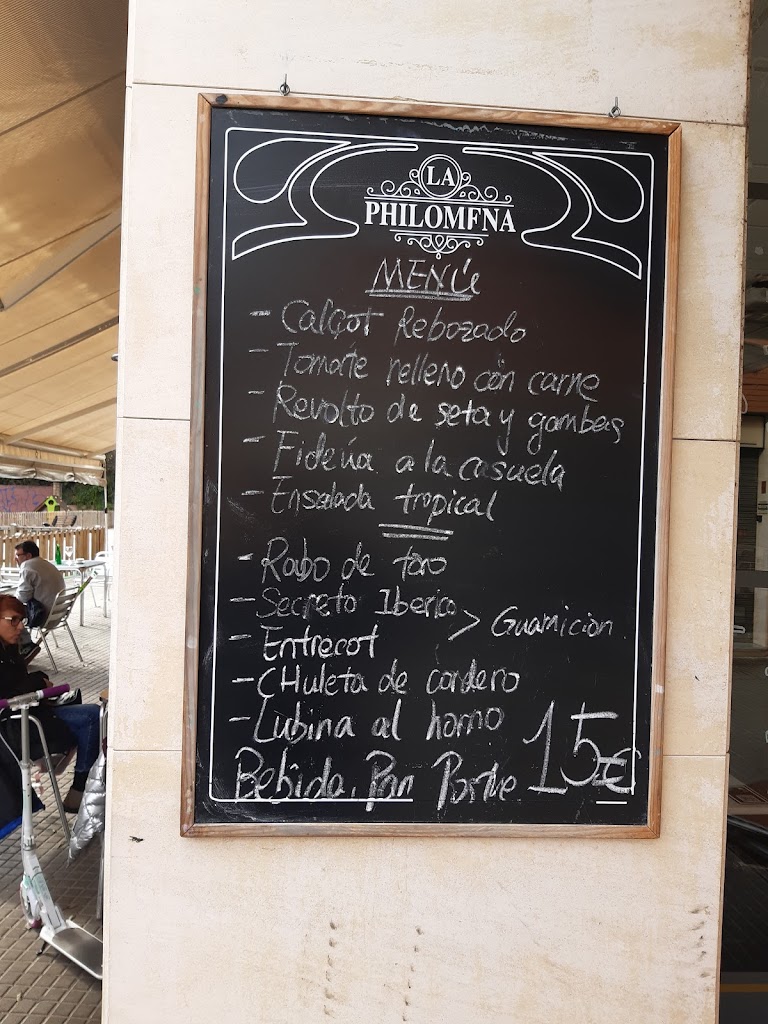 LA
PHILOMENA
MENÚ
- Calçot Rebozado
- Tomate relleno con carne
- Revolto de seta y gambas
- Fideúa a la casuela
- Ensalada tropical
- Rabo de toro
- Secreto Iberico
> Guarnicion
- Entrecot
- CHuleta de cordero
- Lubina al horno
Bebida, Pan Postre 15€